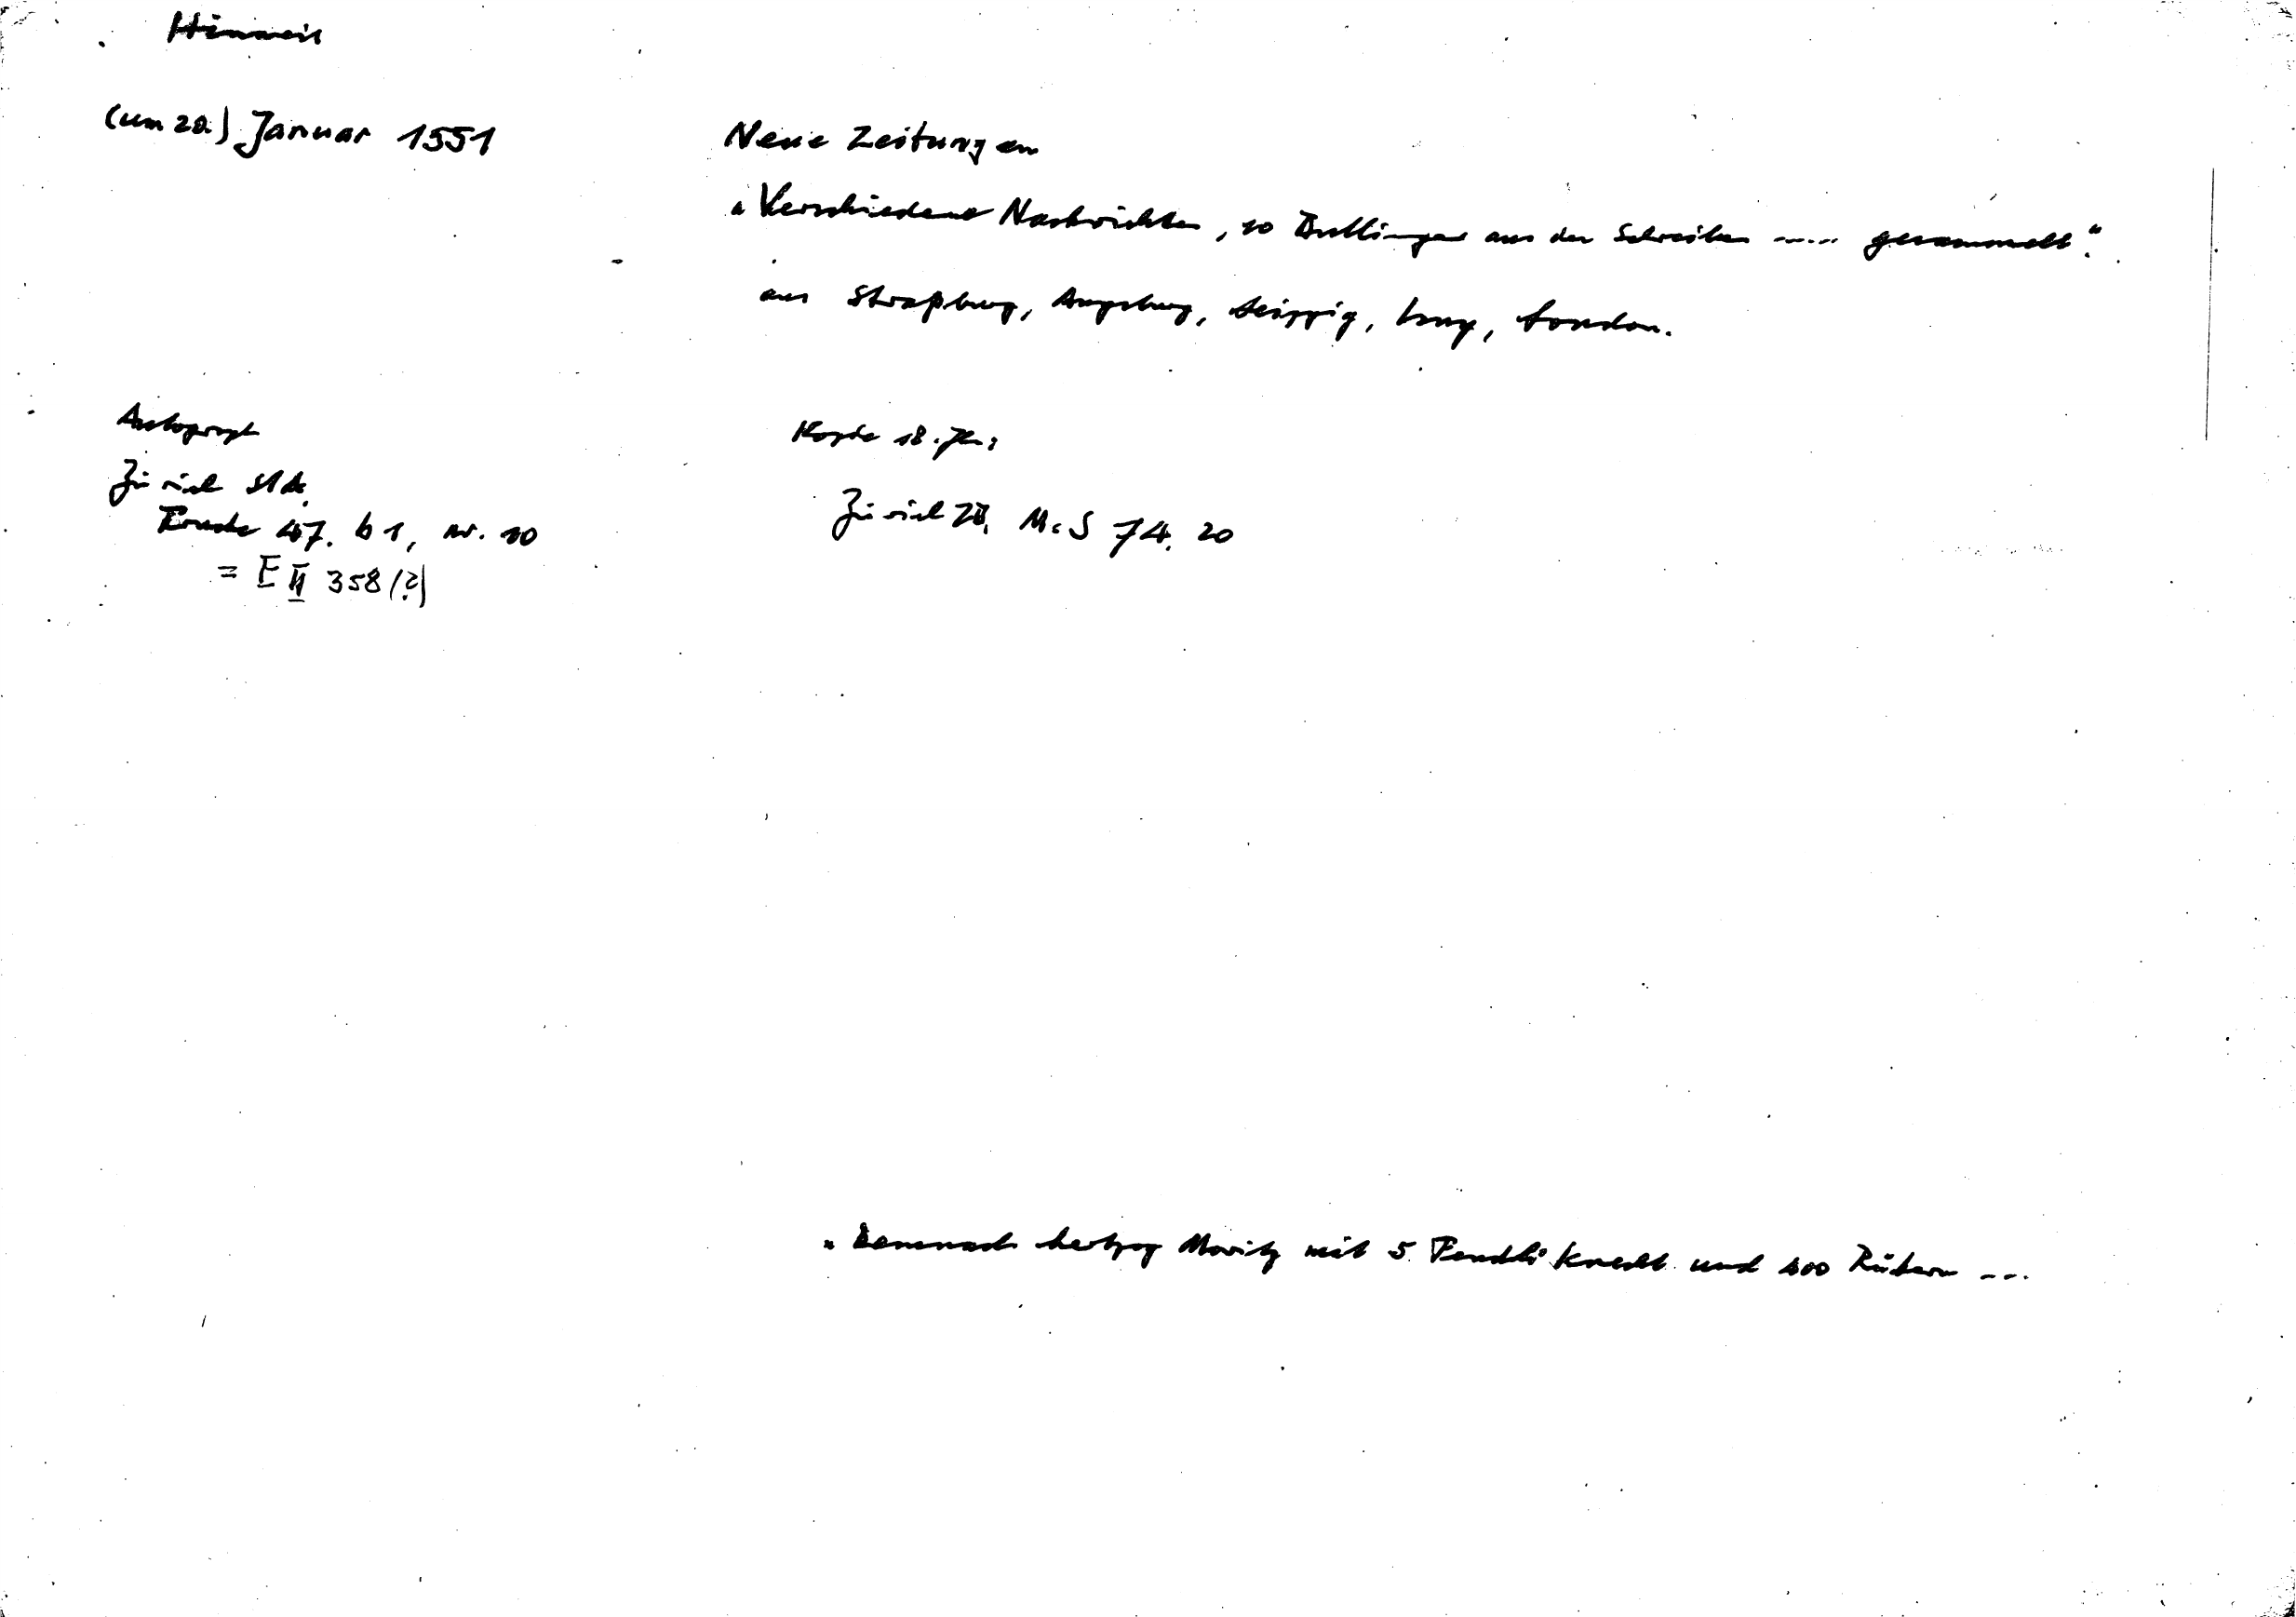 Hinweis
(um 20.) Januar 1551
Neue Zeitungen
"Verschiedene Nachrichten, so Bullinger aus den Schreiben ..... gesammelt".
aus Straßburg, Augsburg, Leipzig, Isny, London.
Autograph
Zürich StA.
Kopie 18. Jh.:
Zürich ZB, Ms S 74. 20
47. b 1, nr. 10
= E II 358 (?)
"Demnach hertzog Moritz mit 5 Fendli knecht und 400 Rütern ...